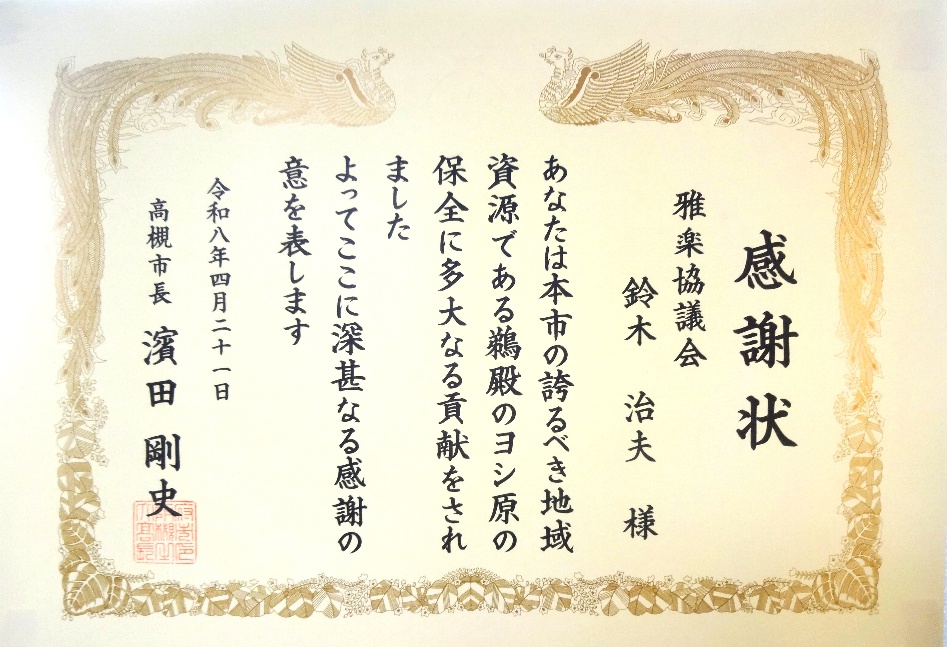 感謝状
雅楽協議会
鈴木 治夫 様
あなたは本市の誇るべき地域
資源である鵜殿のヨシ原の
保全に多大なる貢献をされ
ました
よってここに深甚なる感謝の
意を表します
令和八年四月二十一日
高槻市長 濱田 剛史